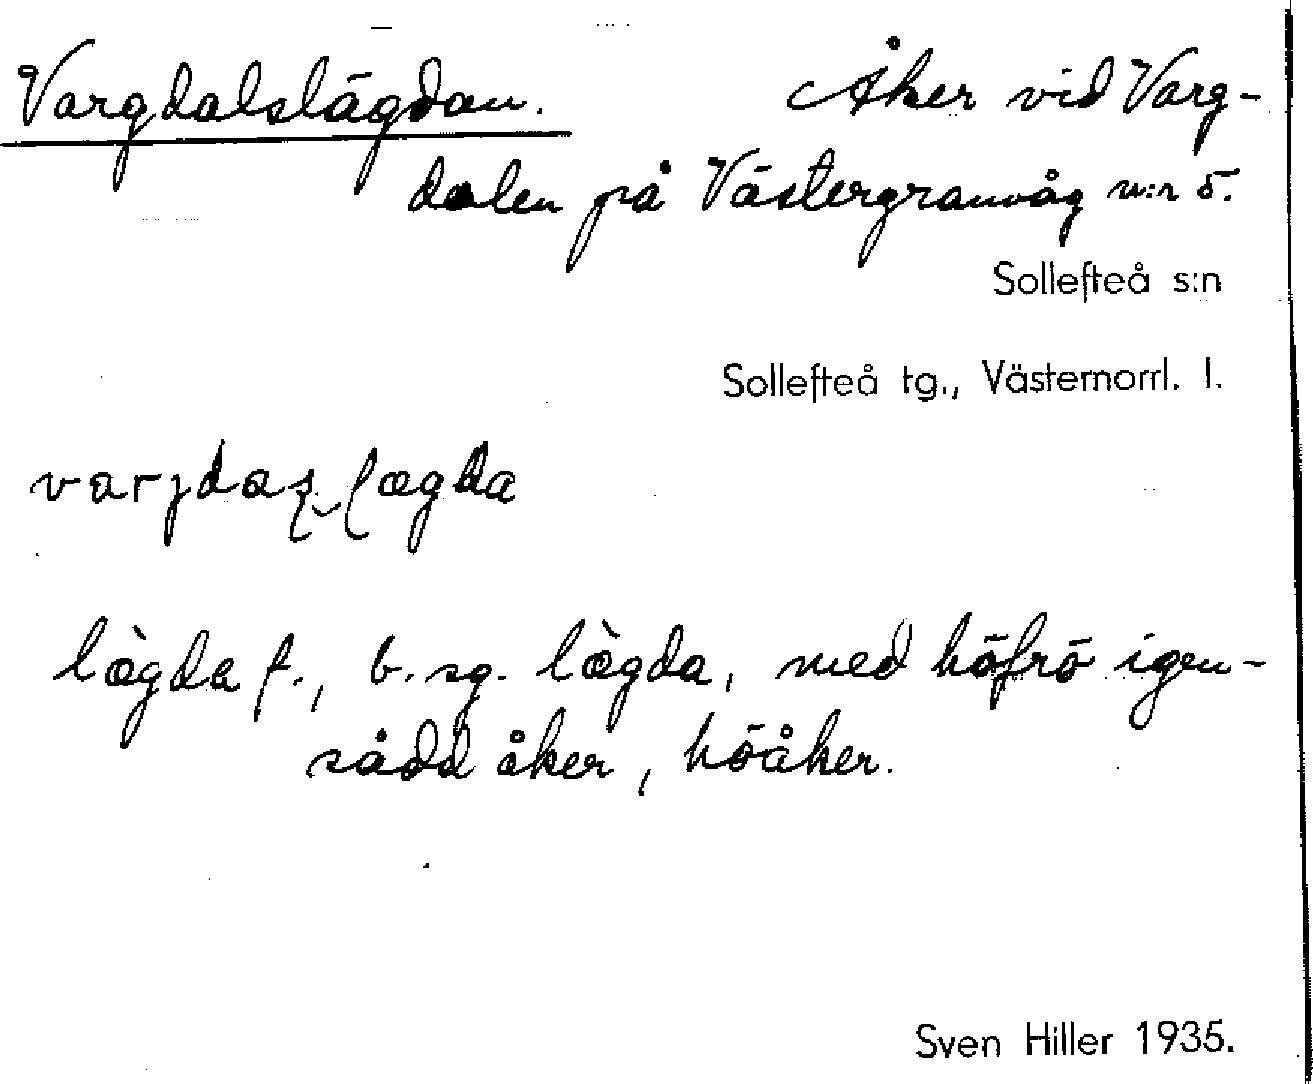 Vargdalslägdan. Åker vid Varg-
dalen på Västergranvåg n:r 5.
Sollefteå s:n
Sollefteå tg., Västernorrl. l.
lægda f., b. sg. lægda, med höfrö igen-
sådd åker, höåker.
Sven Hiller 1935.